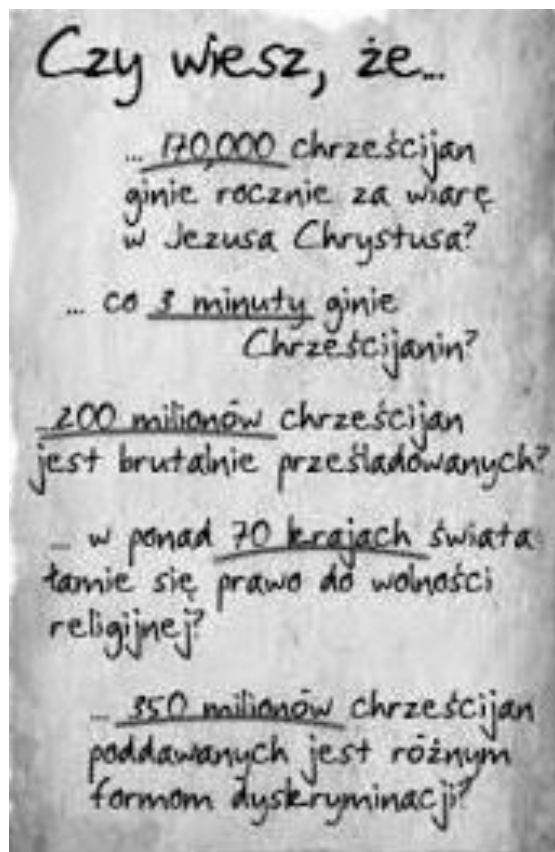 Czy wiesz, że...
... 170,000 chrześcijan
ginie rocznie za wiarę
w Jezusa Chrystusa?
... co 3 minuty ginie
Chrześcijanin?
...200 milionów chrześcijan
jest brutalnie prześladowanych?
... w ponad 70 krajach świata
łamie się prawo do wolności
religijnej?
... 350 milionów chrześcijan
poddawanych jest różnym
formom dyskryminacji?